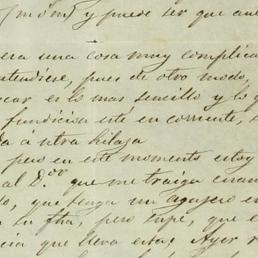 y puede ser que aun
era una cosa muy complica
ntendiese, pues de otro modo,
car es lo mas sencillo y lo q
fundicion este en corriente, s
da á ntra hilaza
pero en este momento estoy
al D.or que me traiga
o, que tenga un agujero en
en su fha, pero supe, que e
cia que lleva estas Ayer r